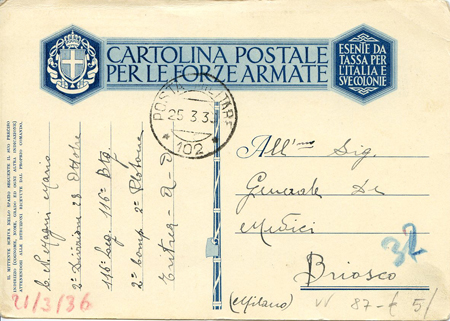 CARTOLINA POSTALE
PER LE FORZE ARMATE
ESENTE DA
TASSA PER
L'ITALIA E
SVE COLONIE
POSTA MILITARE
25.3.36
102
All'
Sig.
Generale De
Medici
Briosco
(Milano)
32
V/ 87-€ 5/
Mario
2ª Divisione 28 Ottobre
116ª Leg. 116º Btg
2ª Comp. 2º Plotone
21/3/36
IL MITTENTE SCRIVA NELLO SPAZIO SEGUENTE IL SUO PRECISO
INDIRIZZO (COGNOME, NOME, GRADO ED OGNI ALTRA INDICAZIONE)
ATTENENDOSI ALLE ISTRUZIONI RICEVUTE DAL PROPRIO COMANDO.